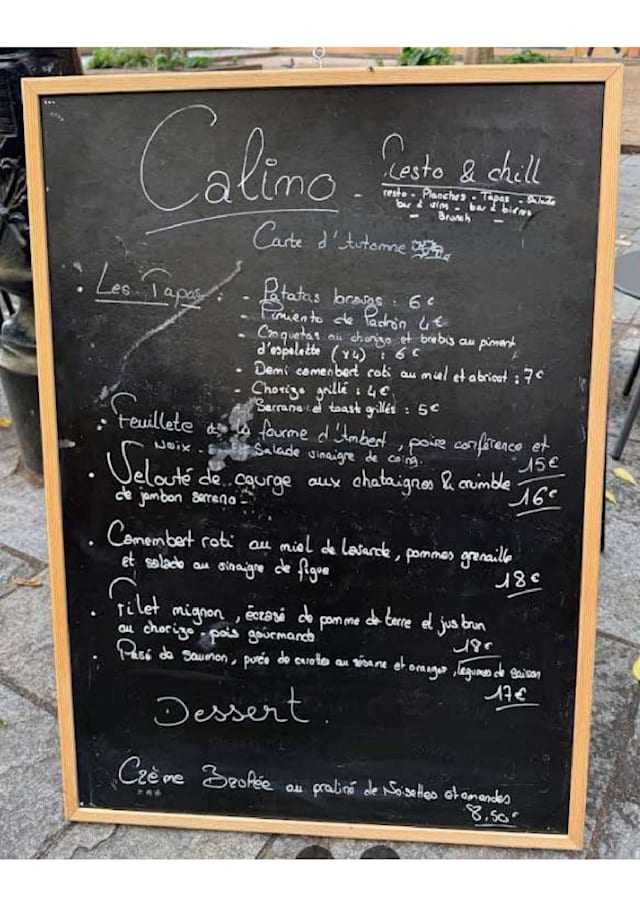 Calimo - Resto & chill
resto - Planches - Tapas - Salade
bar à vins - bar à bières
- Brunch -
Carte d'Automne
• Les Tapas :
- Patatas bravas : 6€
- Pimiento de Padrón 4€
- Croquetas au chorizo et brebis au piment
d'espelette (x4) : 6€
- Demi camembert roti au miel et abricot : 7€
- Chorizo grillé : 4€
Serrano et toast grillés : 5€
• Feuillete à la fourme d'Ambert, poire conférence et
Noix. Salade vinaigre de coing.
15€
• Velouté de courge aux chataignes & crumble
de jambon serrano -
16€
• Camembert roti au miel de lavande, pommes grenaille
et salade au vinaigre de figue
18€
• Filet mignon, écrasé de pomme de terre et jus brun
au chorizo, pois gourmands
18€
• Pavé de Saumon, purée de carottes au sésame et oranges, légumes de saison
17€
Dessert.
Crème Brulée au praliné de Noisettes et amandes
8,50€